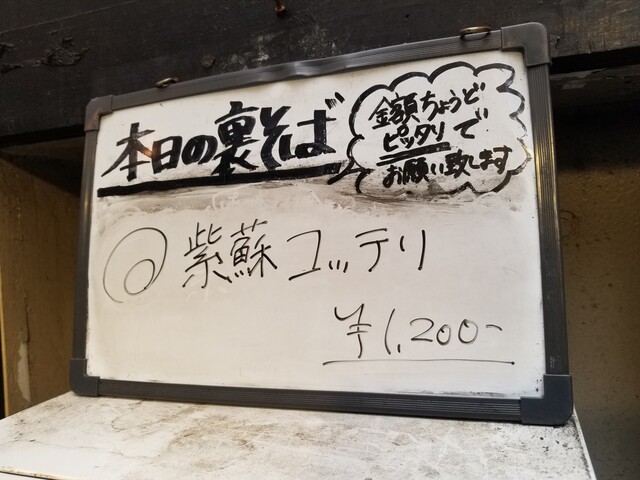 本日の裏そば
金額ちょうど
ピッタリで
お願い致します
◎紫蘇コッテリ
¥1,200-